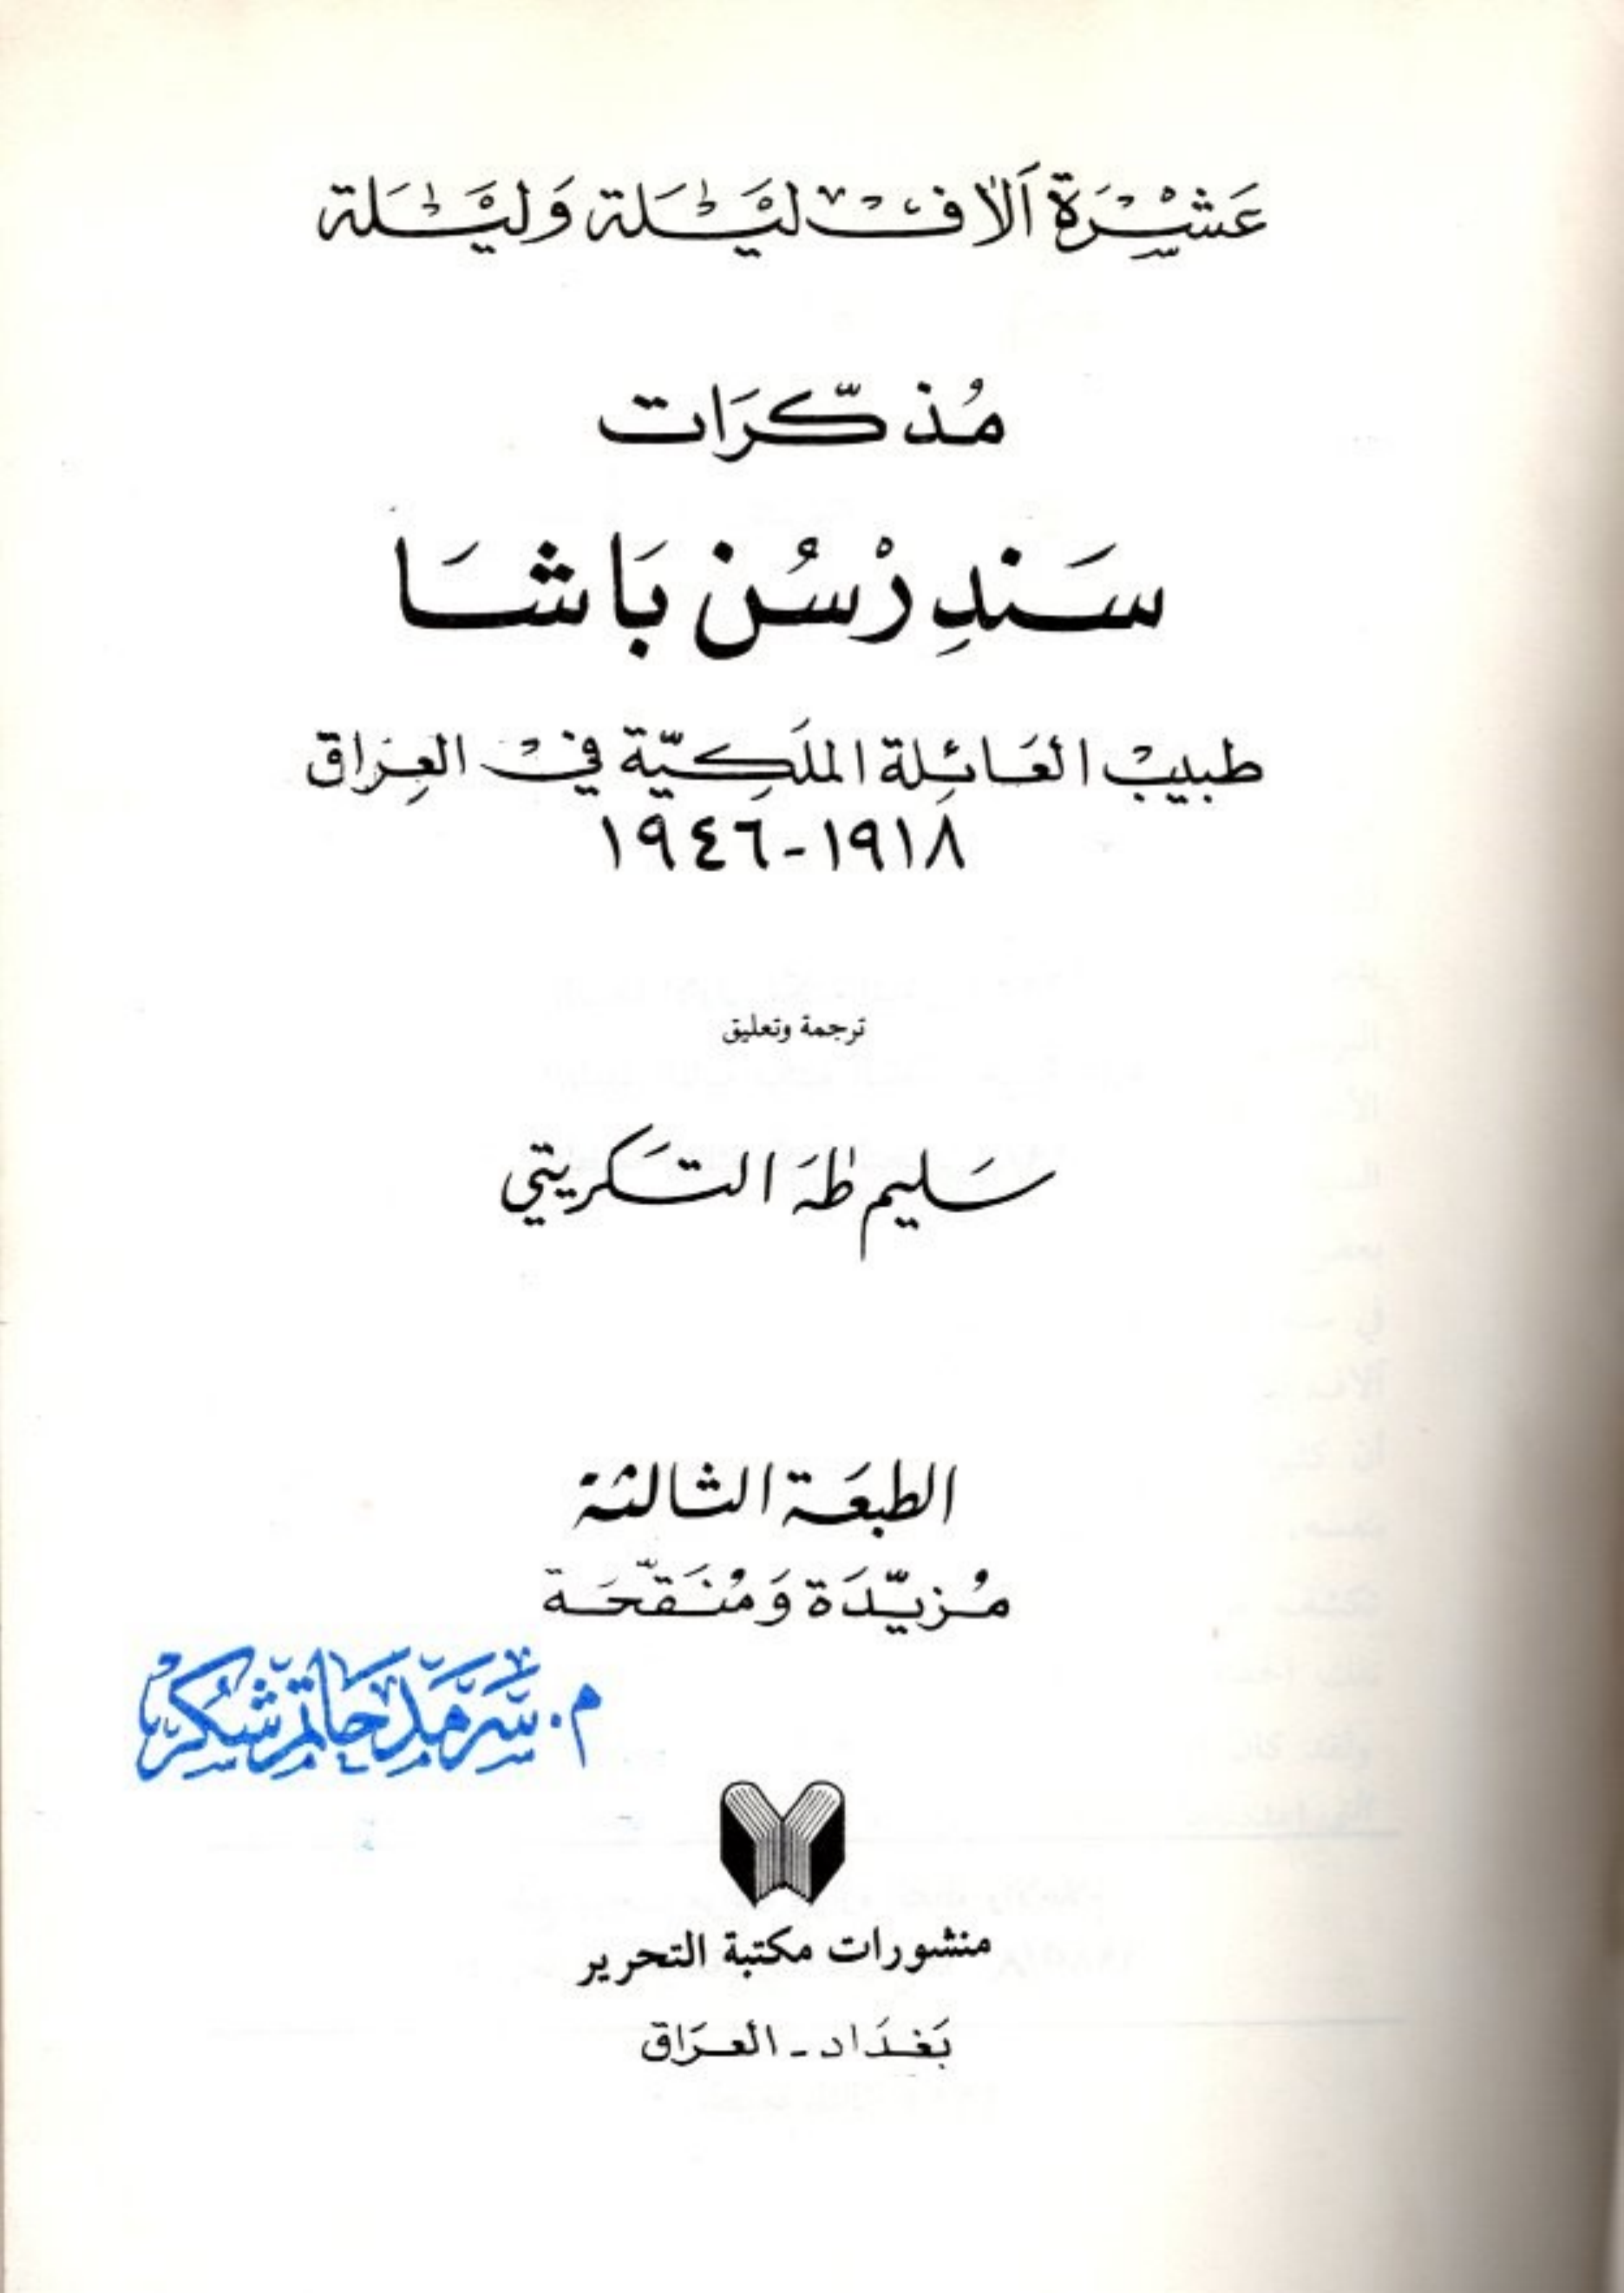 عَشْرَة آلاف لَيْلَة وَلَيْلَة
مُذكّرَات
سَندِرْسُن بَاشَا
طبيب العَائِلة الملَكِيّة في العِرَاق
١٩١٨-١٩٤٦
ترجمة وتعليق
سَليم طٰهَ التَكريتي
الطبعَة الثالثة
مُزيّدَة وَمُنَقّحَة
م. سَرمَد حَاتم شُكر
منشورات مكتبة التحرير
بَغدَاد - العِرَاق